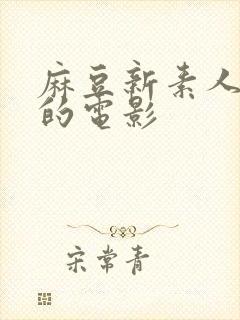 麻豆新素人
的電影
宋常青